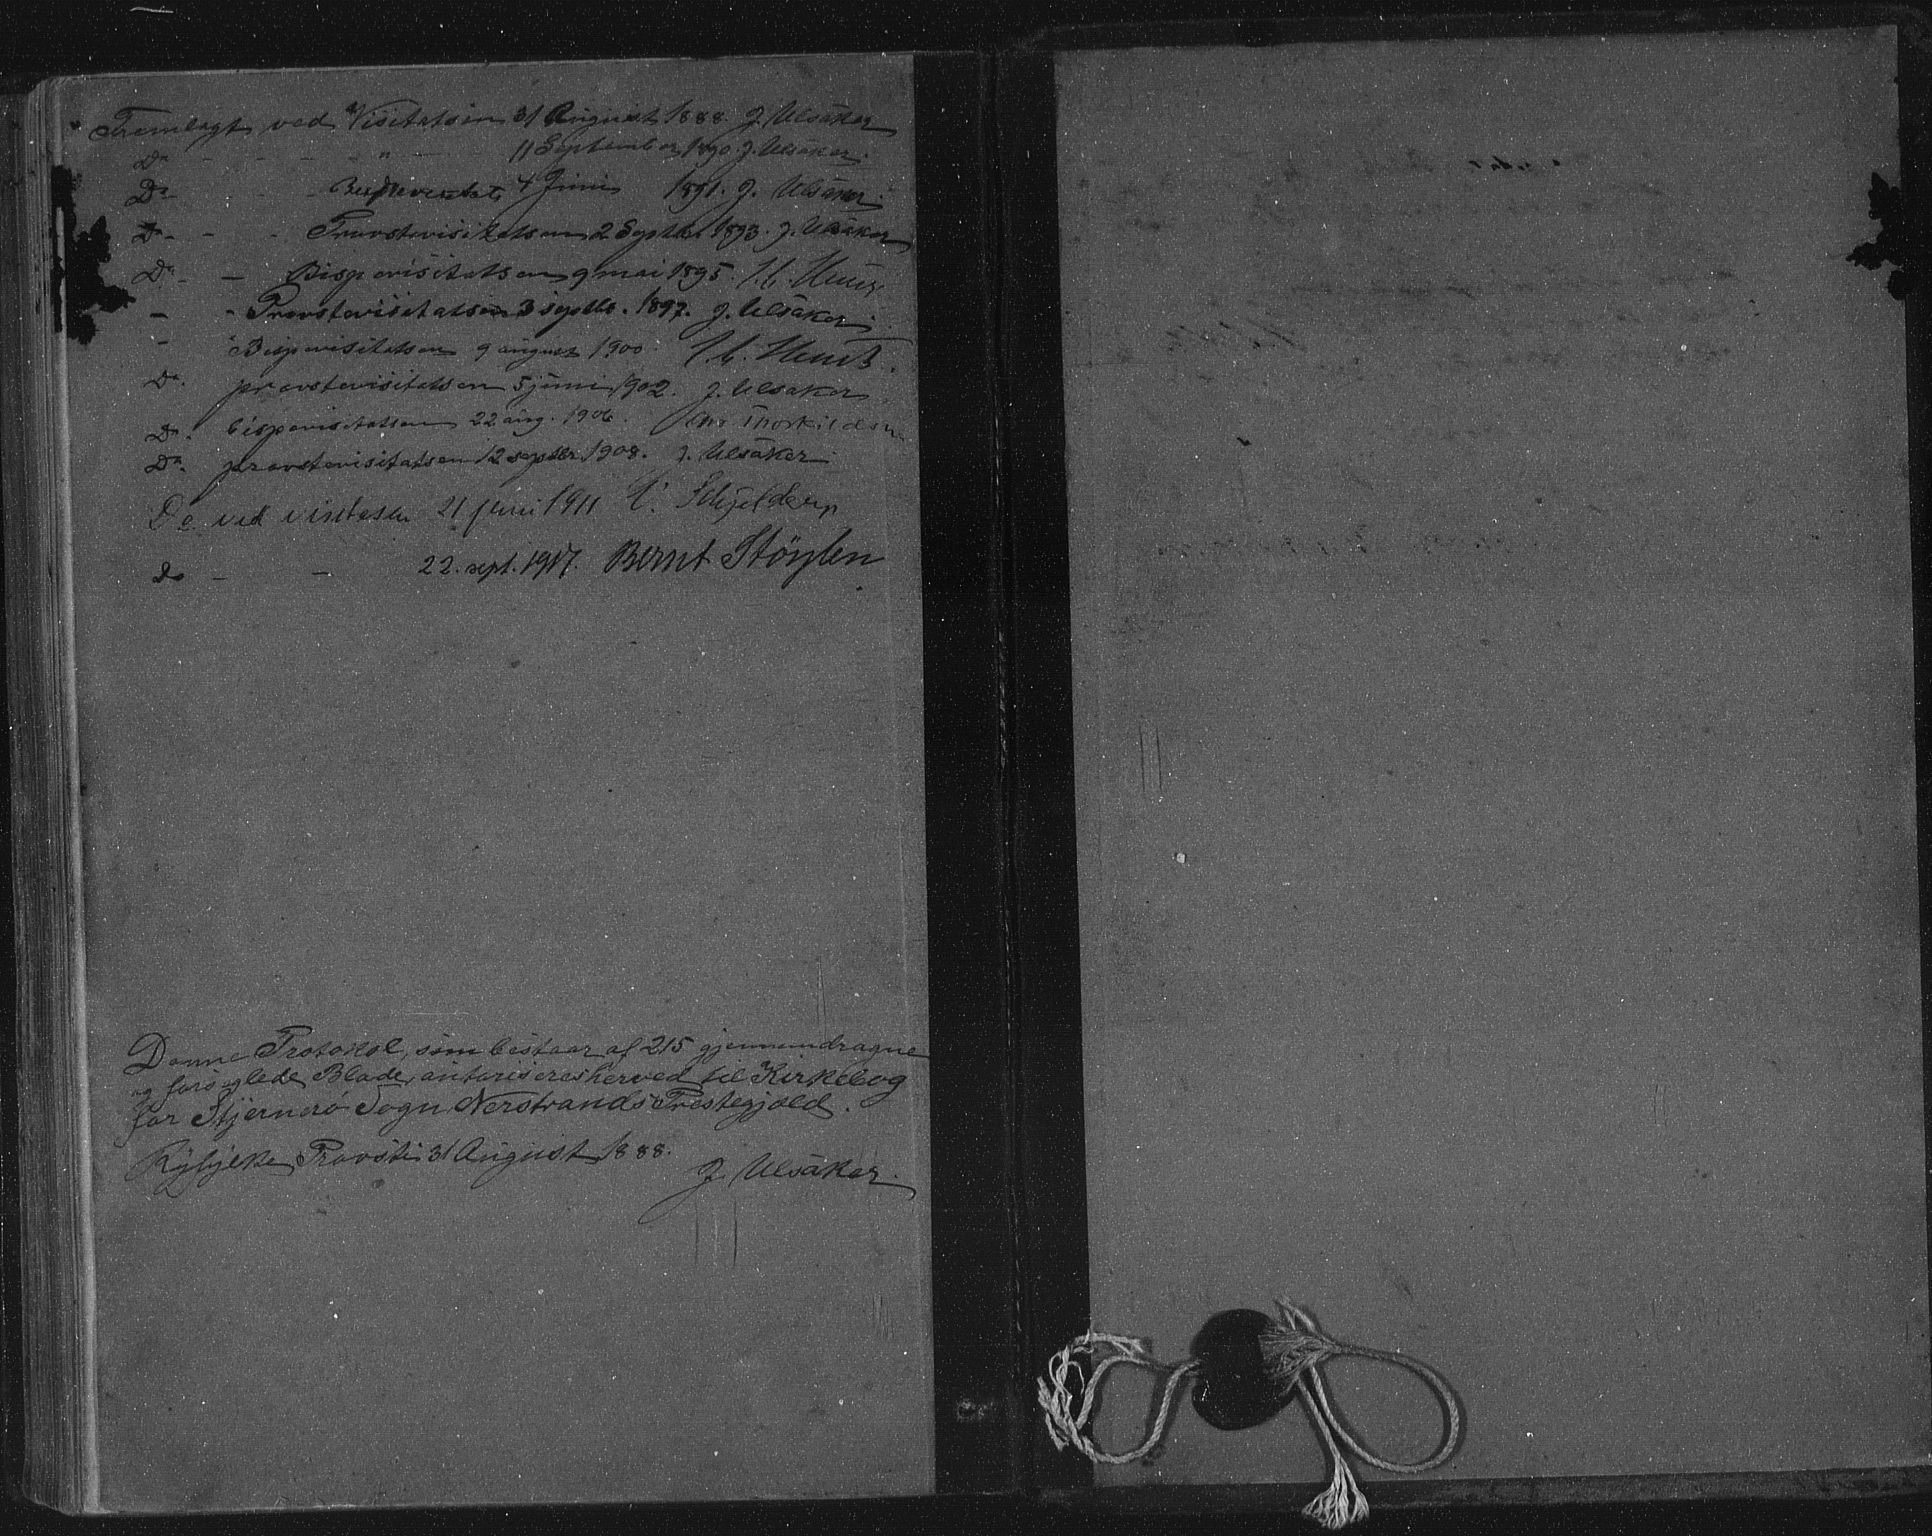 Fremlagt ved Visitatsen 31 August 1888. J. Ulsaker
Do - - - " - 11 September 1890. J. Ulsaker.
Do - - Bispevisitats 4 Juni 1891. J. Ulsaker.
Do - - - Provstevisitatsen 2 Septbr 1893. J. Ulsaker
Do - - Bispevisitatsen 9 mai 1895.
- - Provstevisitatsen 3 septbr. 1897. J. Ulsaker.
- Bispevisitatsen 9 august 1900.
Do. provstevisitatsen 5 juni 1902. J. Ulsaker
Do. bispevisitatsen 22 aug. 1906. Thorkildsen
Do. provstevisitatsen 12 septbr 1908. J. Ulsaker
Do ved visitasen 21 juni 1911 Schjelderup
do - - 22. sept. 1917. Bernt Støylen
Denne Protokol, som bestaar af 215 gjennemdragne
og forseglede Blade, autoriseres herved til Kirkebog
for Stjernerø Sogn, Nerstrands Prestegjæld.
Ryfylke Provsti 31 August 1888.
J. Ulsaker.